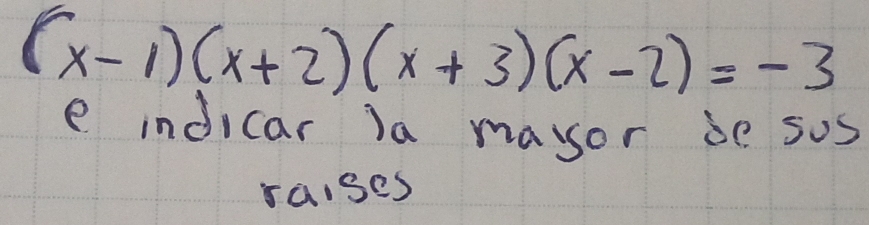 (x-1)(x+2)(x+3)(x-2)=-3
e indicar la mayor de sus
raises